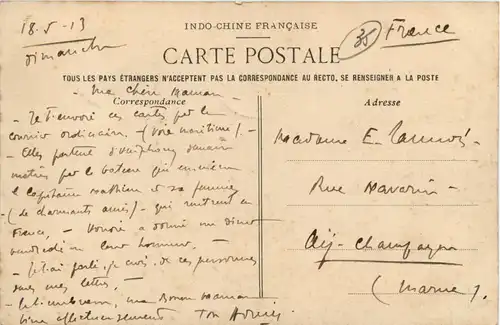 18-5-13
Dimanche
INDO-CHINE FRANÇAISE
35
France
CARTE POSTALE
TOUS LES PAYS ÉTRANGERS N'ACCEPTENT PAS LA CORRESPONDANCE AU RECTO, SE RENSEIGNER A LA POSTE
Correspondance
Adresse
- Ma chère Maman -
- Je t'envoie ces cartes par le
courrier ordinaire. - (Voie maritime). -
- Elles partent d'Haïphong demain
par le bateau qui
le Capitaine et sa femme
- (de charmants amis) - qui rentrent en
France, - donné un dîner
vendredi en leur honneur. -
- Je t'ai parlé, je crois, de ces personnes
dans mes lettres. -
- Je t'embrasse, ma bonne maman
bien affectueusement Ton
Madame E.
Rue Navarin -
Aÿ-Champagne
(Marne).